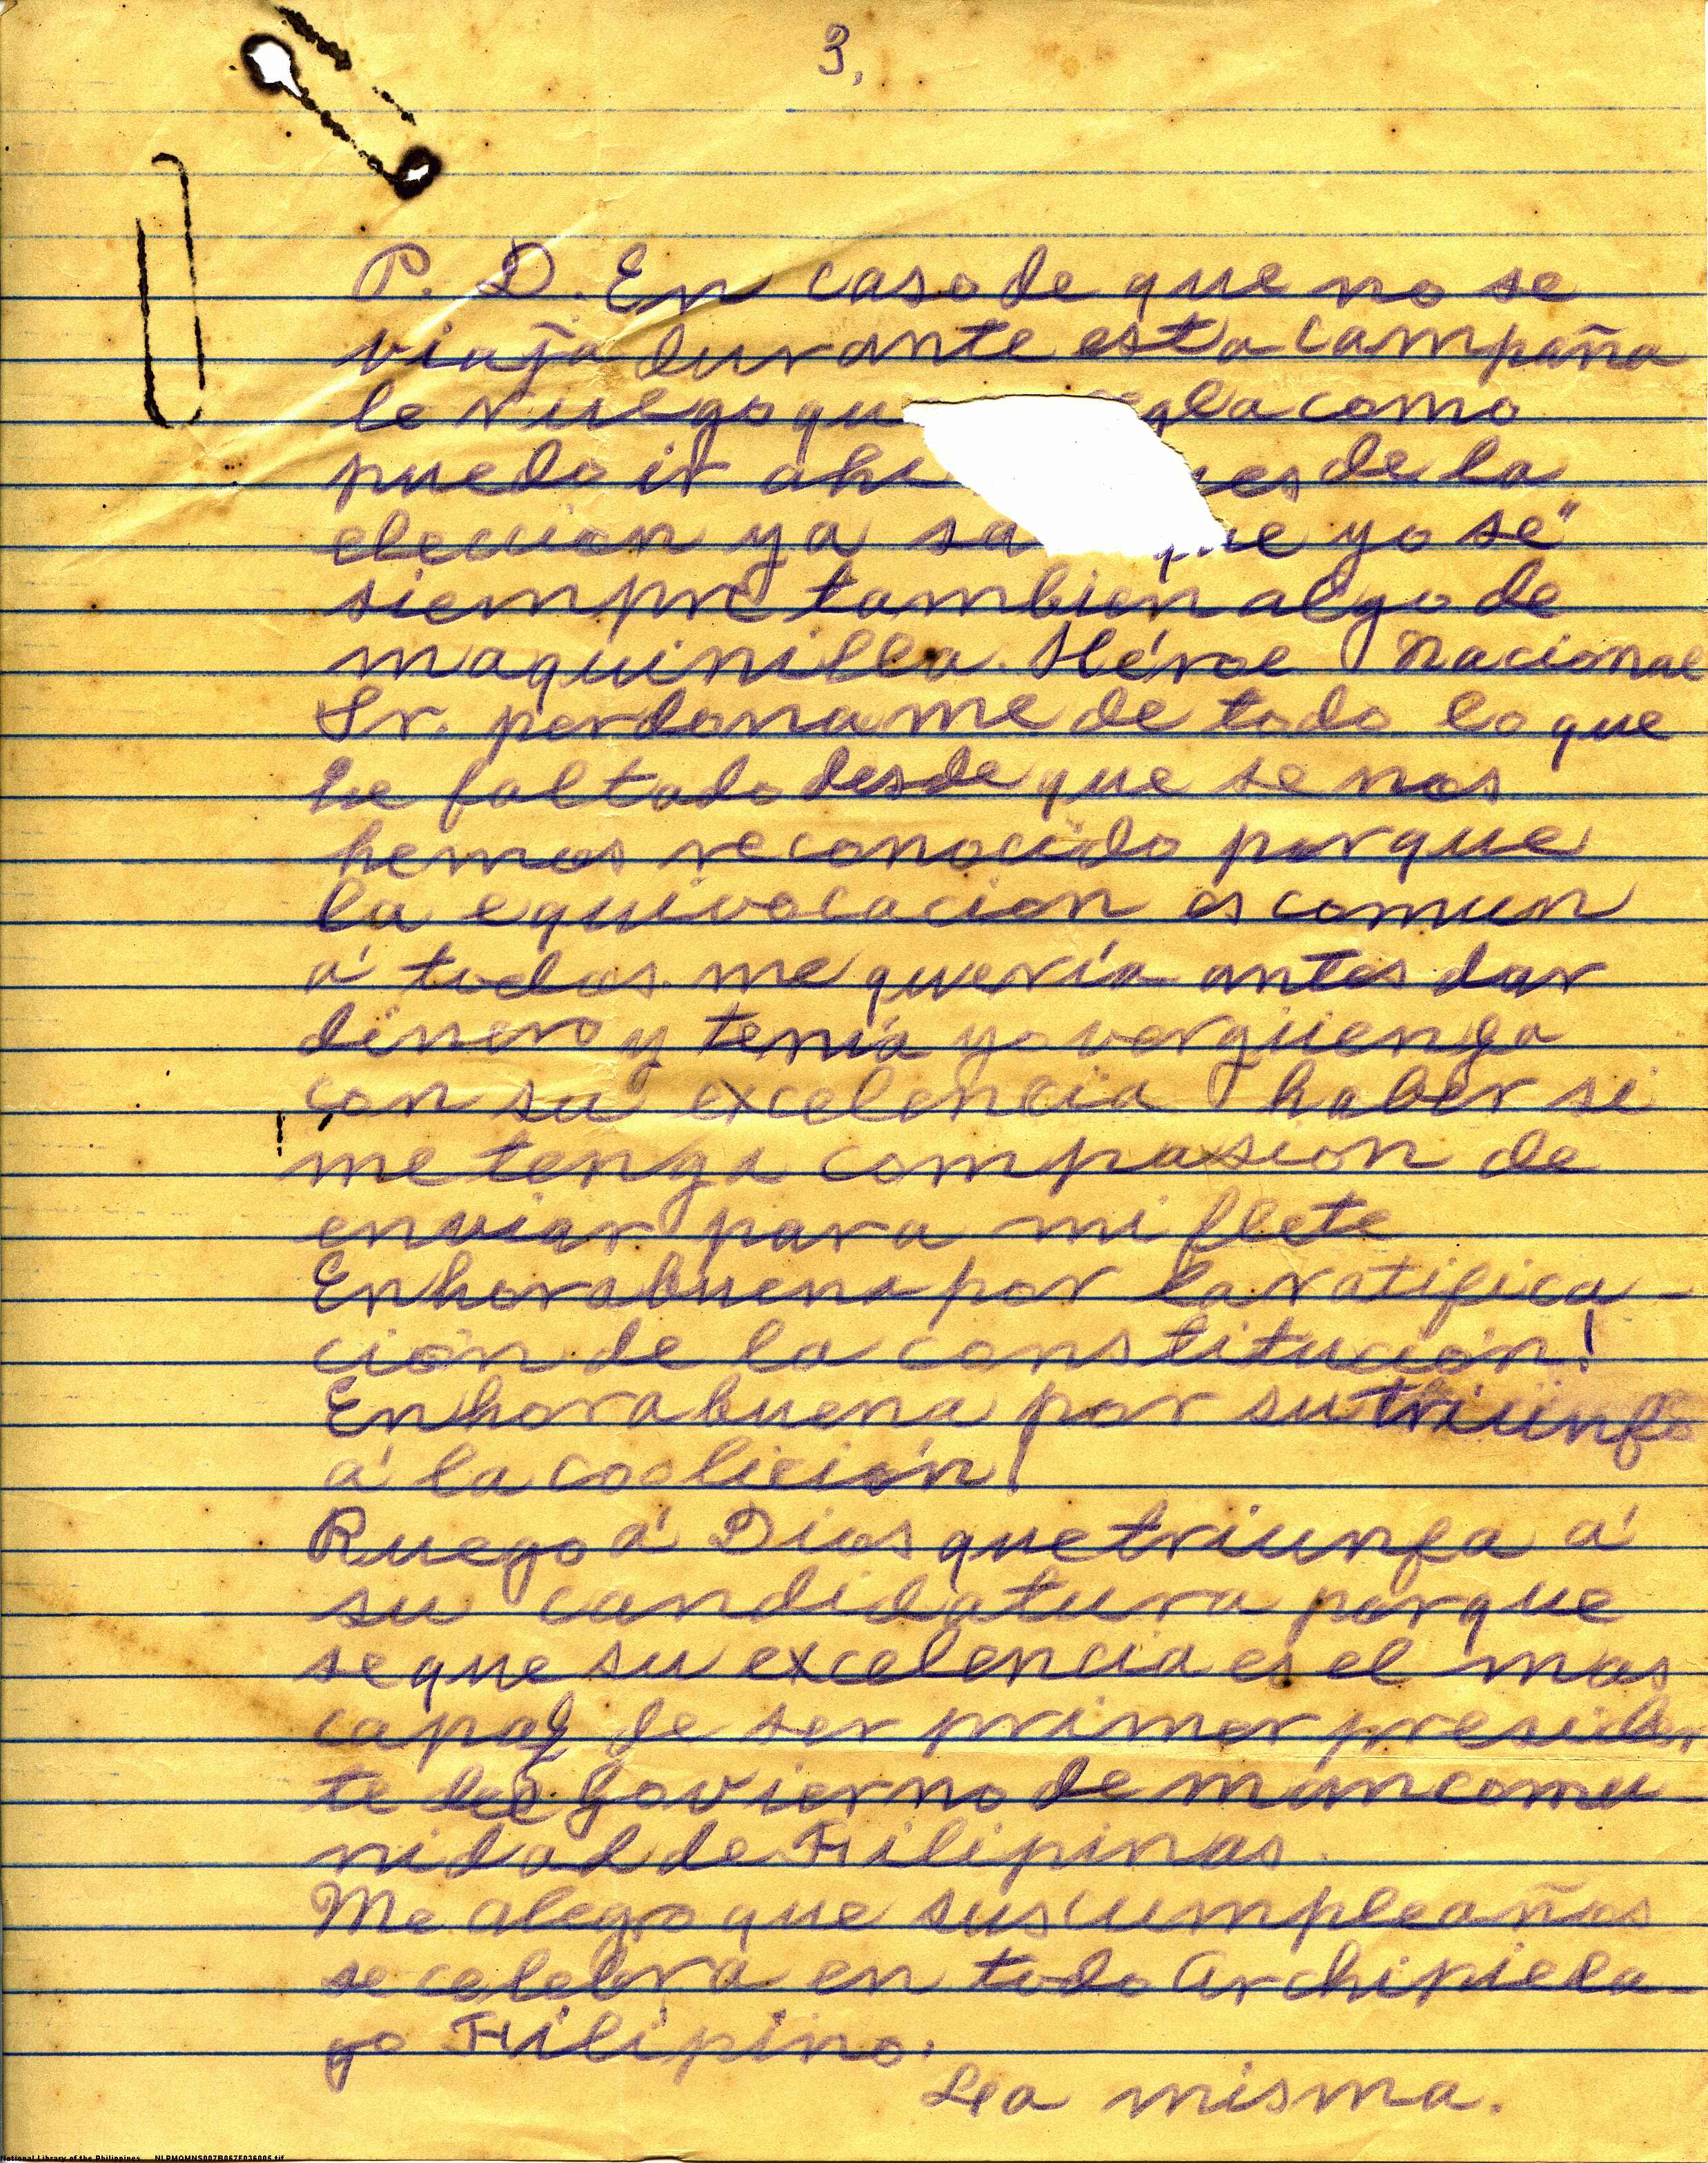 3.
P. D. En caso de que no se
viaja durante esta campaña
le ruego qu egla como
puedo ir ahi ues de la
eleccion ya sa que yo se"
siempre tambien algo de
maquinilla. Héroe Nacional
Sr. perdoname de todo lo que
he faltado desde que se nos
hemos reconocido porque
la equivocacion es comun
á todos. me quería antes dar
dinero y tenía yo vergüenza
con su excelencia haber si
me tenga compasion de
enviar para mi flete
Enhorabuena por la ratifica-
ción de la constitución!
Enhorabuena por su triunfo
á la coalición!
Ruego á Dios que triunfa á
su candidatura porque
se que su excelencia es el mas
capaz de ser primer presiden
te del Govierno de mancomu
nidad de Filipinas.
Me alegro que sus cumpleaños
se celebra en todo Archipiela-
go Filipino.
La misma.
National Library of the Philippines NLPMQMNS007B067F036005.tif